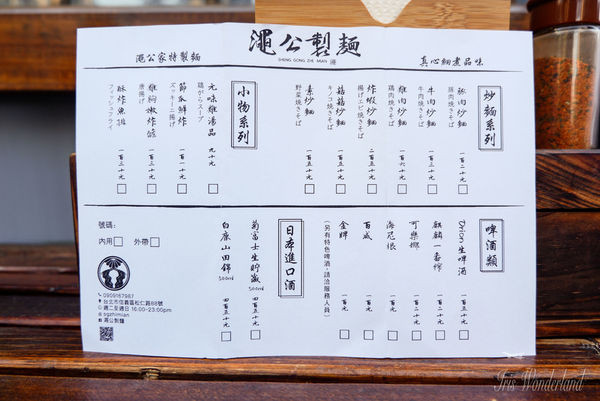 澠公製麵
SHENG GONG ZHI MIAN
澠公家特製麵
真心細煮品味
炒麵系列
豚肉炒麵
豚肉焼きそば
一百五十元
牛肉炒麵
牛肉焼きそば
一百五十元
雞肉炒麵
鶏肉焼きそば
一百六十元
炸蝦炒麵
揚げエビ焼きそば
二百五十元
菇菇炒麵
キノコ焼きそば
一百五十元
素炒麵
野菜焼きそば
一百五十元
小物系列
元味雞湯品
鶏がらスープ
九十元
節瓜鮮炸
ズッキーニ揚げ
一百八十元
雞胸嫩炸餚
唐揚げ
一百二十元
酥炸魚排
フィッシュフライ
一百二十元
啤酒類
Orion生啤酒
一百五十元
麒麟一番榨
一百二十元
可樂娜
一百二十元
海尼根
一百元
百威
一百元
金牌
一百元
(另有特色啤酒,請洽服務人員)
日本進口酒
菊富士生貯藏
300ml
四百五十元
白鹿山田錦
300ml
四百五十元
號碼:
內用 外帶
0909167987
台北市信義區松仁路88號
週二至週日 16:00-23:00pm
sgzhimian
澠公製麵
Iris Wonderland